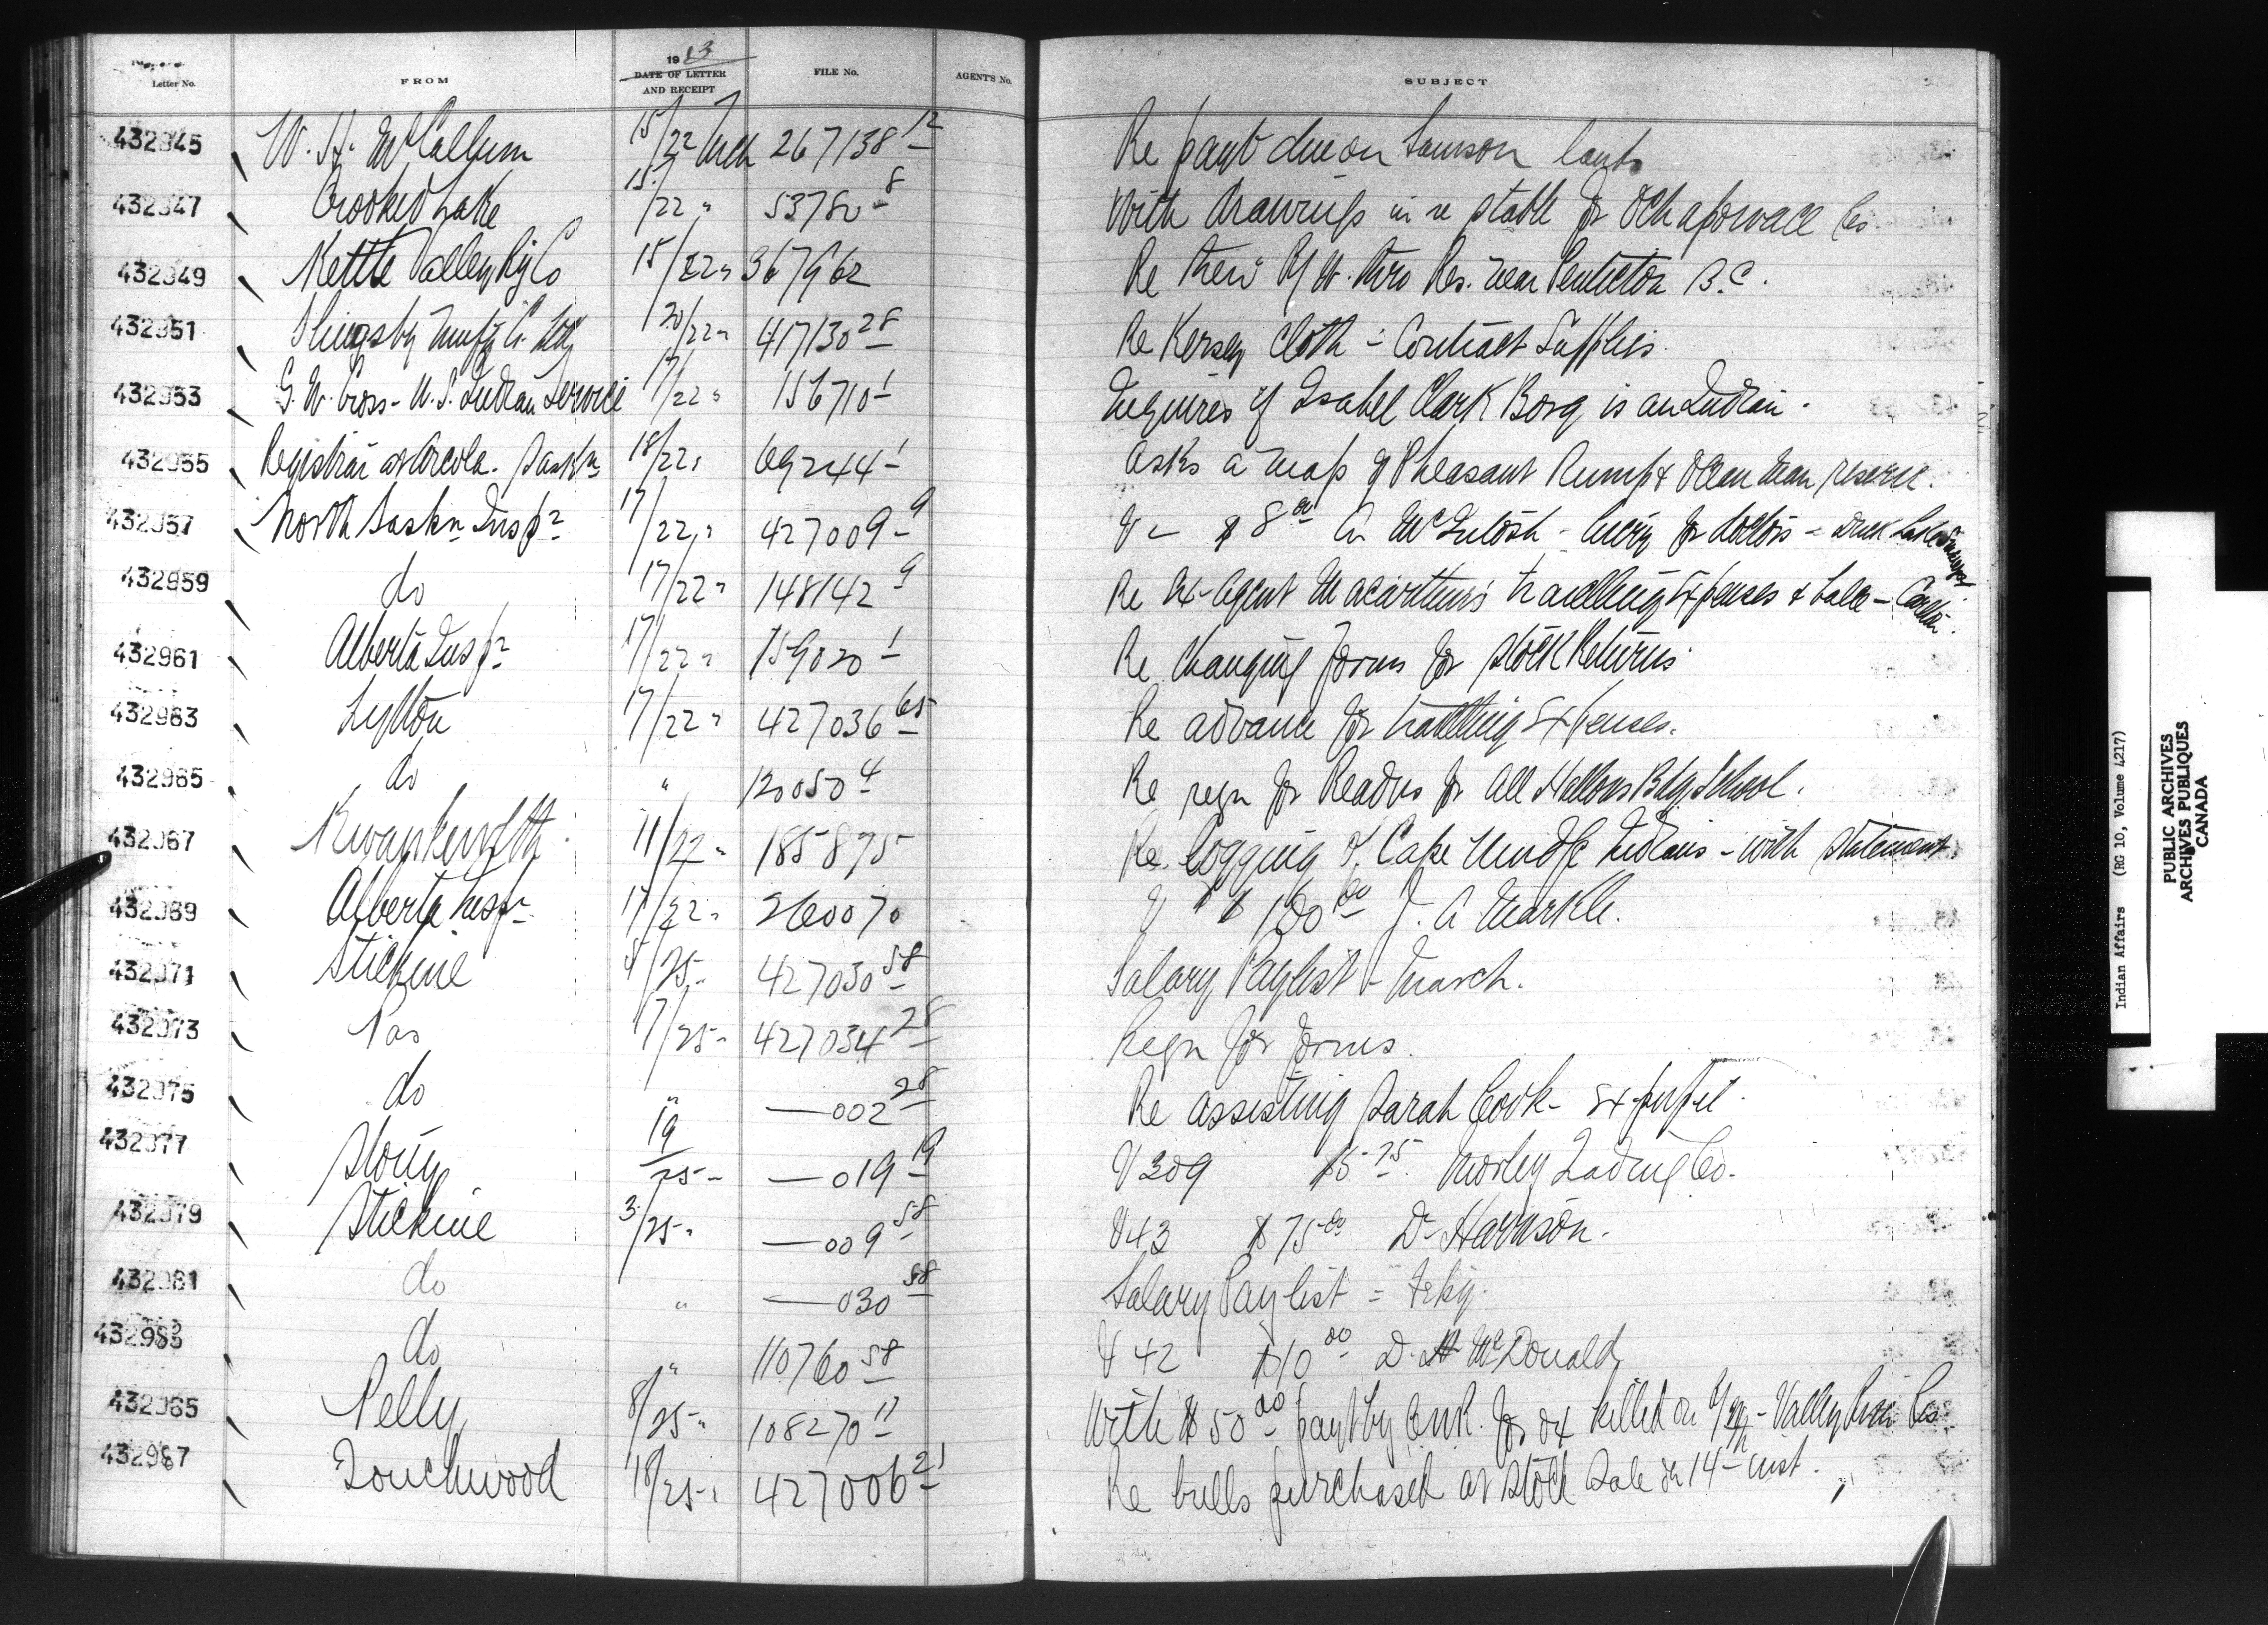 Letter No. FROM 1913 DATE OF LETTER AND RECEIPT FILE No. AGENT'S No. SUBJECT
432945 W. H. McCallum 15/22 Mch 267138-12 Re payt due on Samson lands
432947 Crooked Lake 15/22 " 53780-8 With drawings in re stable for Ochapowace Res
432949 Kettle Valley Ry Co 15/22 " 367962 Re their Rf W. thro Res. near Penticton B.C.
432951 Slingsby Manfg Co. Ltd 20/22 " 41713028 Re Kersey Cloth - Contract Supplies
432953 G. W. Cross - U.S. Indian Service 17/22 " 156710-1 Inquires if Isabel Clark Borg is an Indian.
432955 Registrar at Arcola. Saskn 18/22 " 69244-1 Asks a map of Pheasant Rump & Ocean Man reserve.
432957 North Saskn Insp? 17/22 " 427009-9 V - $8 00 A McIntosh - livery for doctors - Duck Lake
432959 do 17/22 " 148142-9 Re Ex-Agent Macarthur's travelling Expenses & bale - Carlton.
432961 Alberta Insp? 17/22 " 159020-1 Re changing forms for stock Returns
432963 Lytton 17/22 " 427036-65 Re advance for travelling Expenses.
432965 do " 120050-4 Re reqn for Readers for All Hallows Bdg School.
432967 Kwawkewlth 11/22 " 185875 Re logging of Cape Mudge Indians - with statement
432969 Alberta Insp? 17/22 " 260070 V $100 00 J. A Markle.
432971 Stickine 4/25 " 427030-58 Salary Paylist - March.
432973 Pas 17/25 " 427034-28 Reqn for forms.
432975 do " —002-28 Re assisting Sarah Cook - Ex-pupil
432977 Stony 19/25 " —019-19 V 309 $5 75 Morley Trading Co.
432979 Stickine 3/25 " —009-58 V 43 $75 00 Dr Harrison.
432981 do " —030-58 Salary Paylist = Feby.
432983 do " 110760-58 V 42 $10 00 D. H McDonald
432985 Pelly 8/25 " 108270-11 With $50 00 payt by C.N.R. for ox killed on Valley River Res
432987 Touchwood 18/25 " 427006-21 Re bulls purchased at stock sale on 14th inst.
Indian Affairs (RG 10, Volume 4217)
PUBLIC ARCHIVES
ARCHIVES PUBLIQUES
CANADA